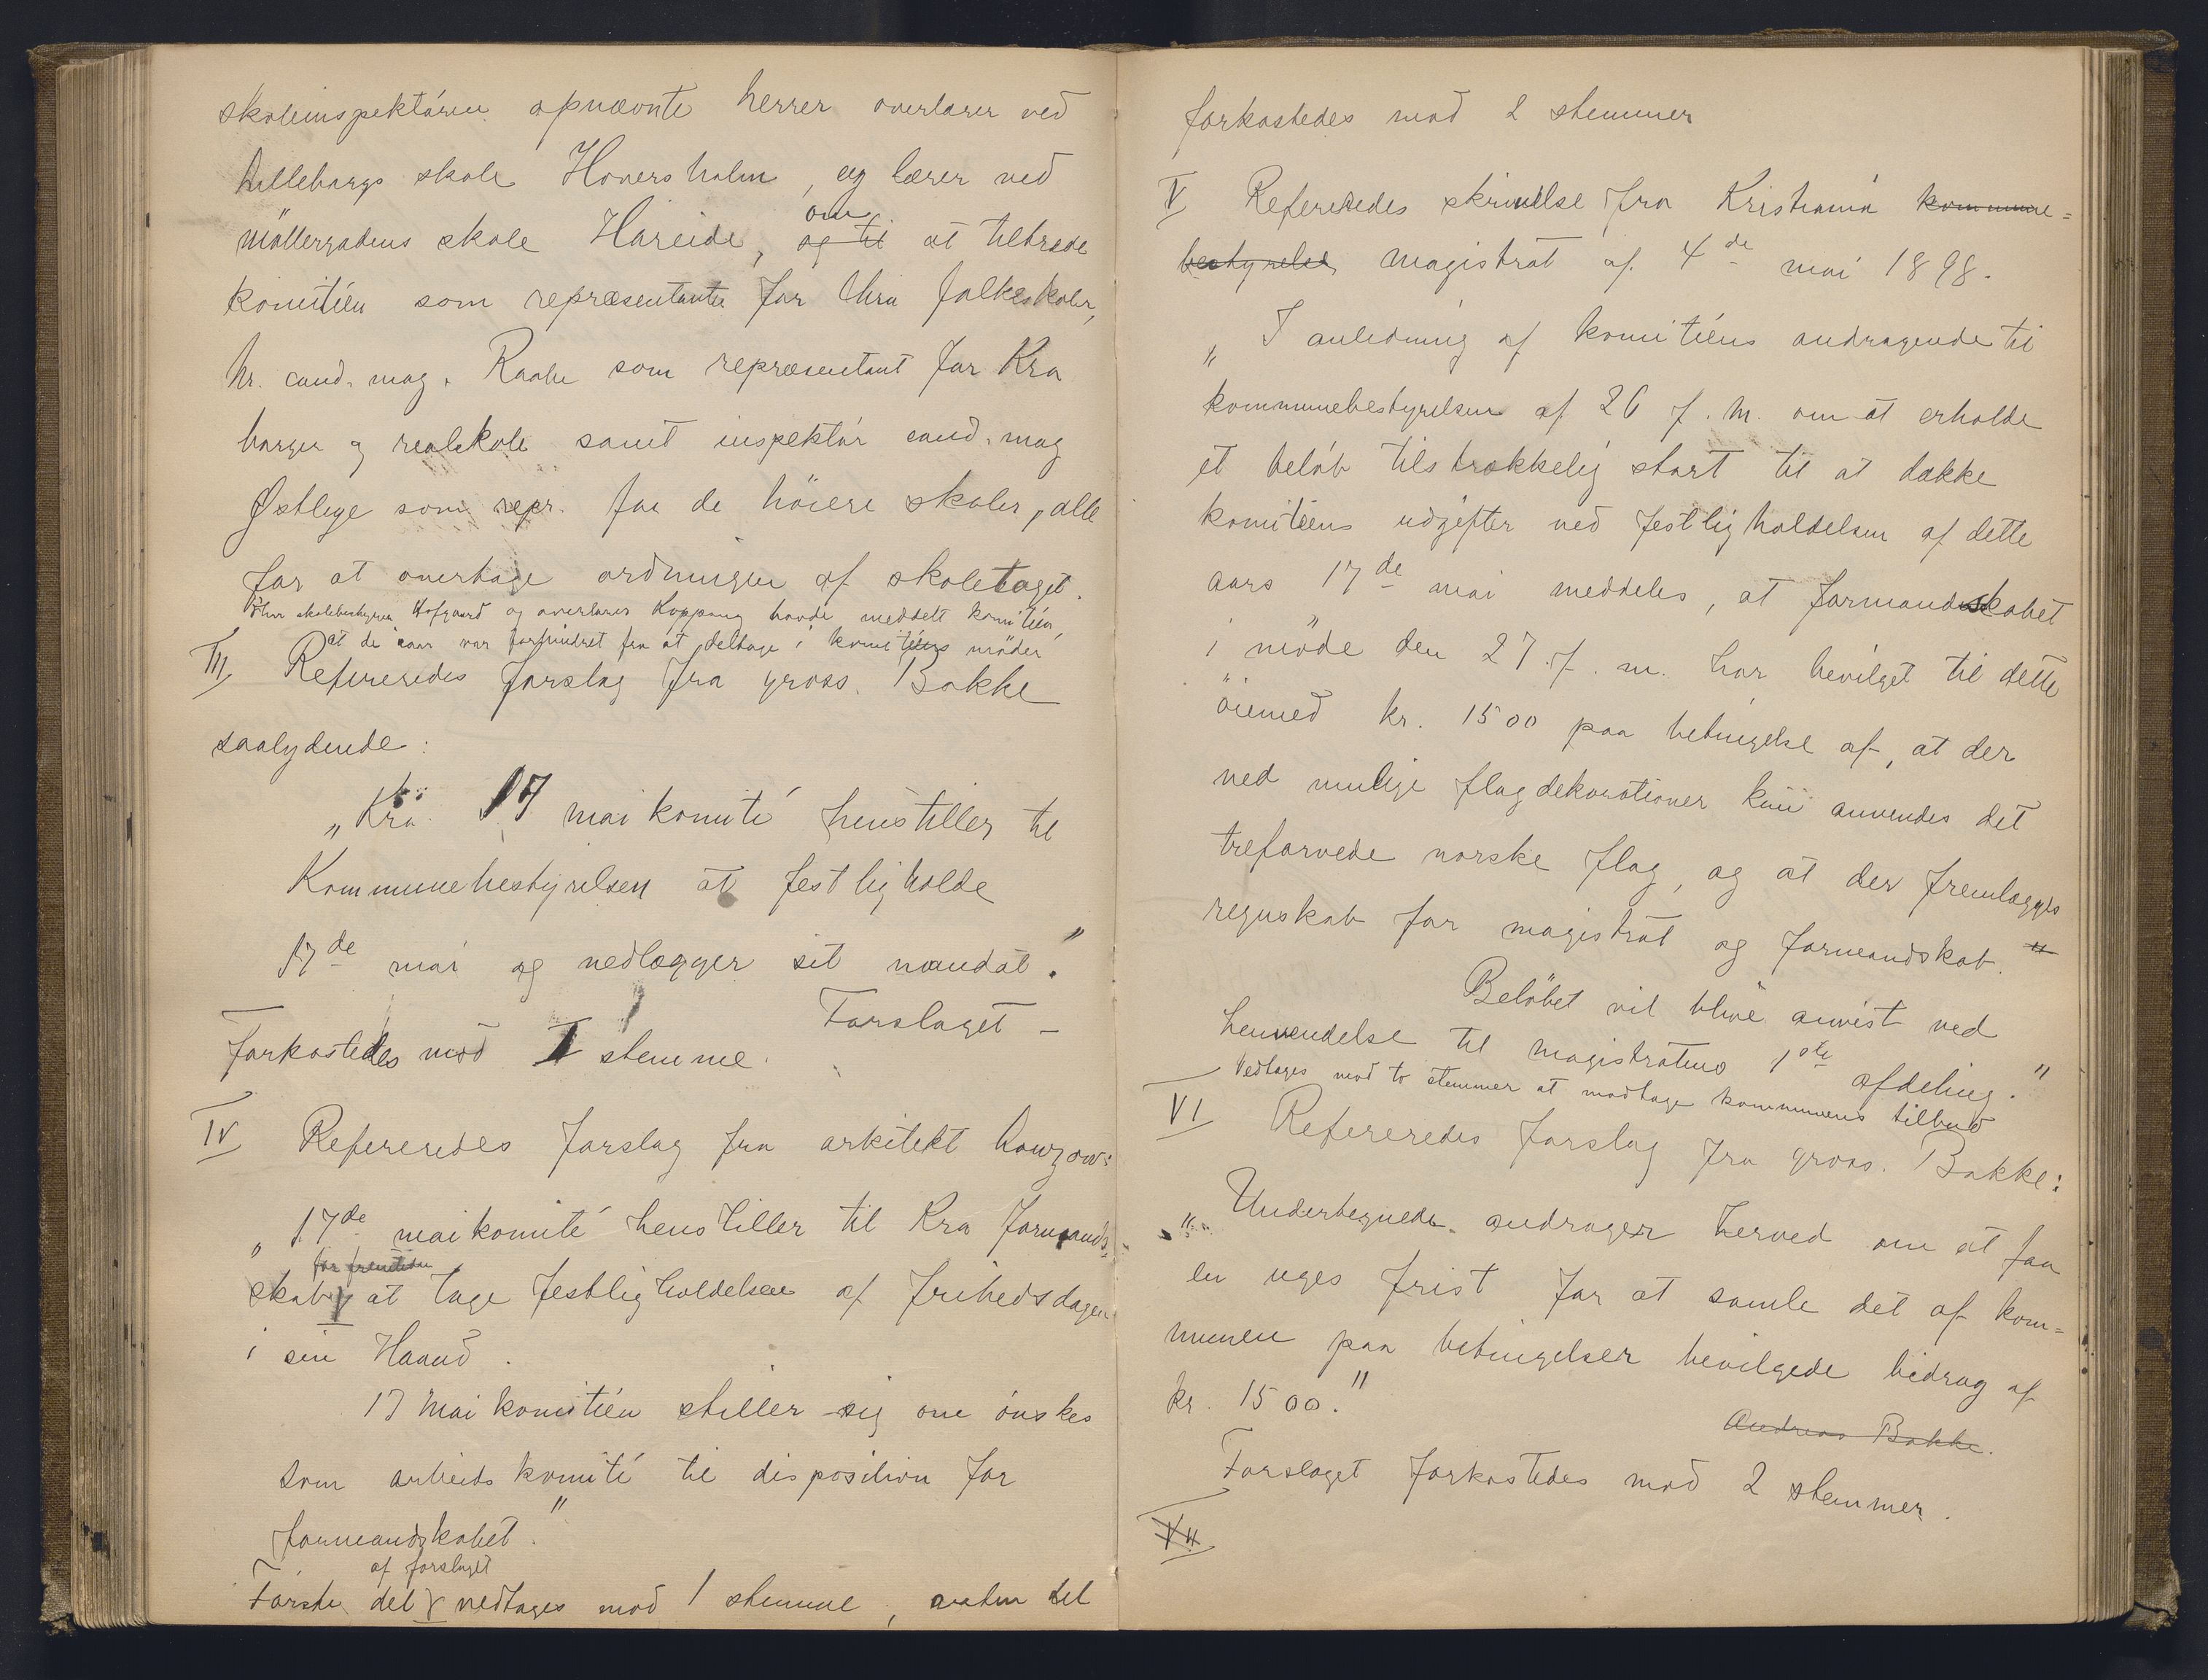 skoleinspektören opnævnte herrer overlærer ved
Lilleborgs skole Hoversholm, og lærer ved
Möllergadens skole Hareide, og til om at tiltræde
komitéen som repræsentanter for Kra folkeskoler,
hr. cand. mag. Raabe som repræsentant for Kra
borger og realskole samt inspektör cand. mag
Østlye som repr. for de höiere skoler, alle
for at overtage ordningen af skoletoget.
Hofgaard og overlærer Koppang havde meddelt komitéen,
at de iaar var forhindret fra at deltage i komitéens möder
III Refereredes forslag fra gross. Bakke
saalydende:
„Kra 17 mai komité henstiller til
Kommunebestyrelsen at festligholde
17de mai og nedlægger sit mandat."
Forslaget –
forkastedes mod 1 stemme.
IV Refereredes forslag fra arkitekt
„17de mai komité henstiller til Kra formand-
for fremtiden
skab at tage festligholdelsen af frihedsdagen
i sin Haand.
17 Mai komitéen stiller sig om önskes
som arbeidskomité til disposition for
formandskabet."
af forslaget
Förste del vedtages mod 1 stemme, anden del
forkastedes mod 2 stemmer
V Refereredes skrivelse fra Kristiania kommune-
bestyrelse, magistrat af 4de mai 1898.
„I anledning af komitéens andragende til
kommunebestyrelsen af 26 f. m. om at erholde
et belöb tilstrækkelig stort til at dække
komitéens udgifter ved festligholdelsen af dette
aars 17de mai meddeles, at formandskabet
i möde den 27 f. m. har bevilget til dette
öiemed kr. 1500 paa betingelse af, at der
ved mulige flagdekorationer kun anvendes det
trefarvede norske flag, og at der fremlægges
regnskab for magistrat og formandskab. "
Belöbet vil blive anvist ved
henvendelse til magistratens 1ste afdeling."
Vedtages mod to stemmer at modtage kommunens tilbud
VI Refereredes forslag fra gross. Bakke:
„Undertegnede andrager herved om at faa
en uges frist for at samle det af kom-
munen paa betingelser bevilgede bidrag af
kr. 1500."
Andreas Bakke.
Forslaget forkastedes mod 2 stemmer.
VII